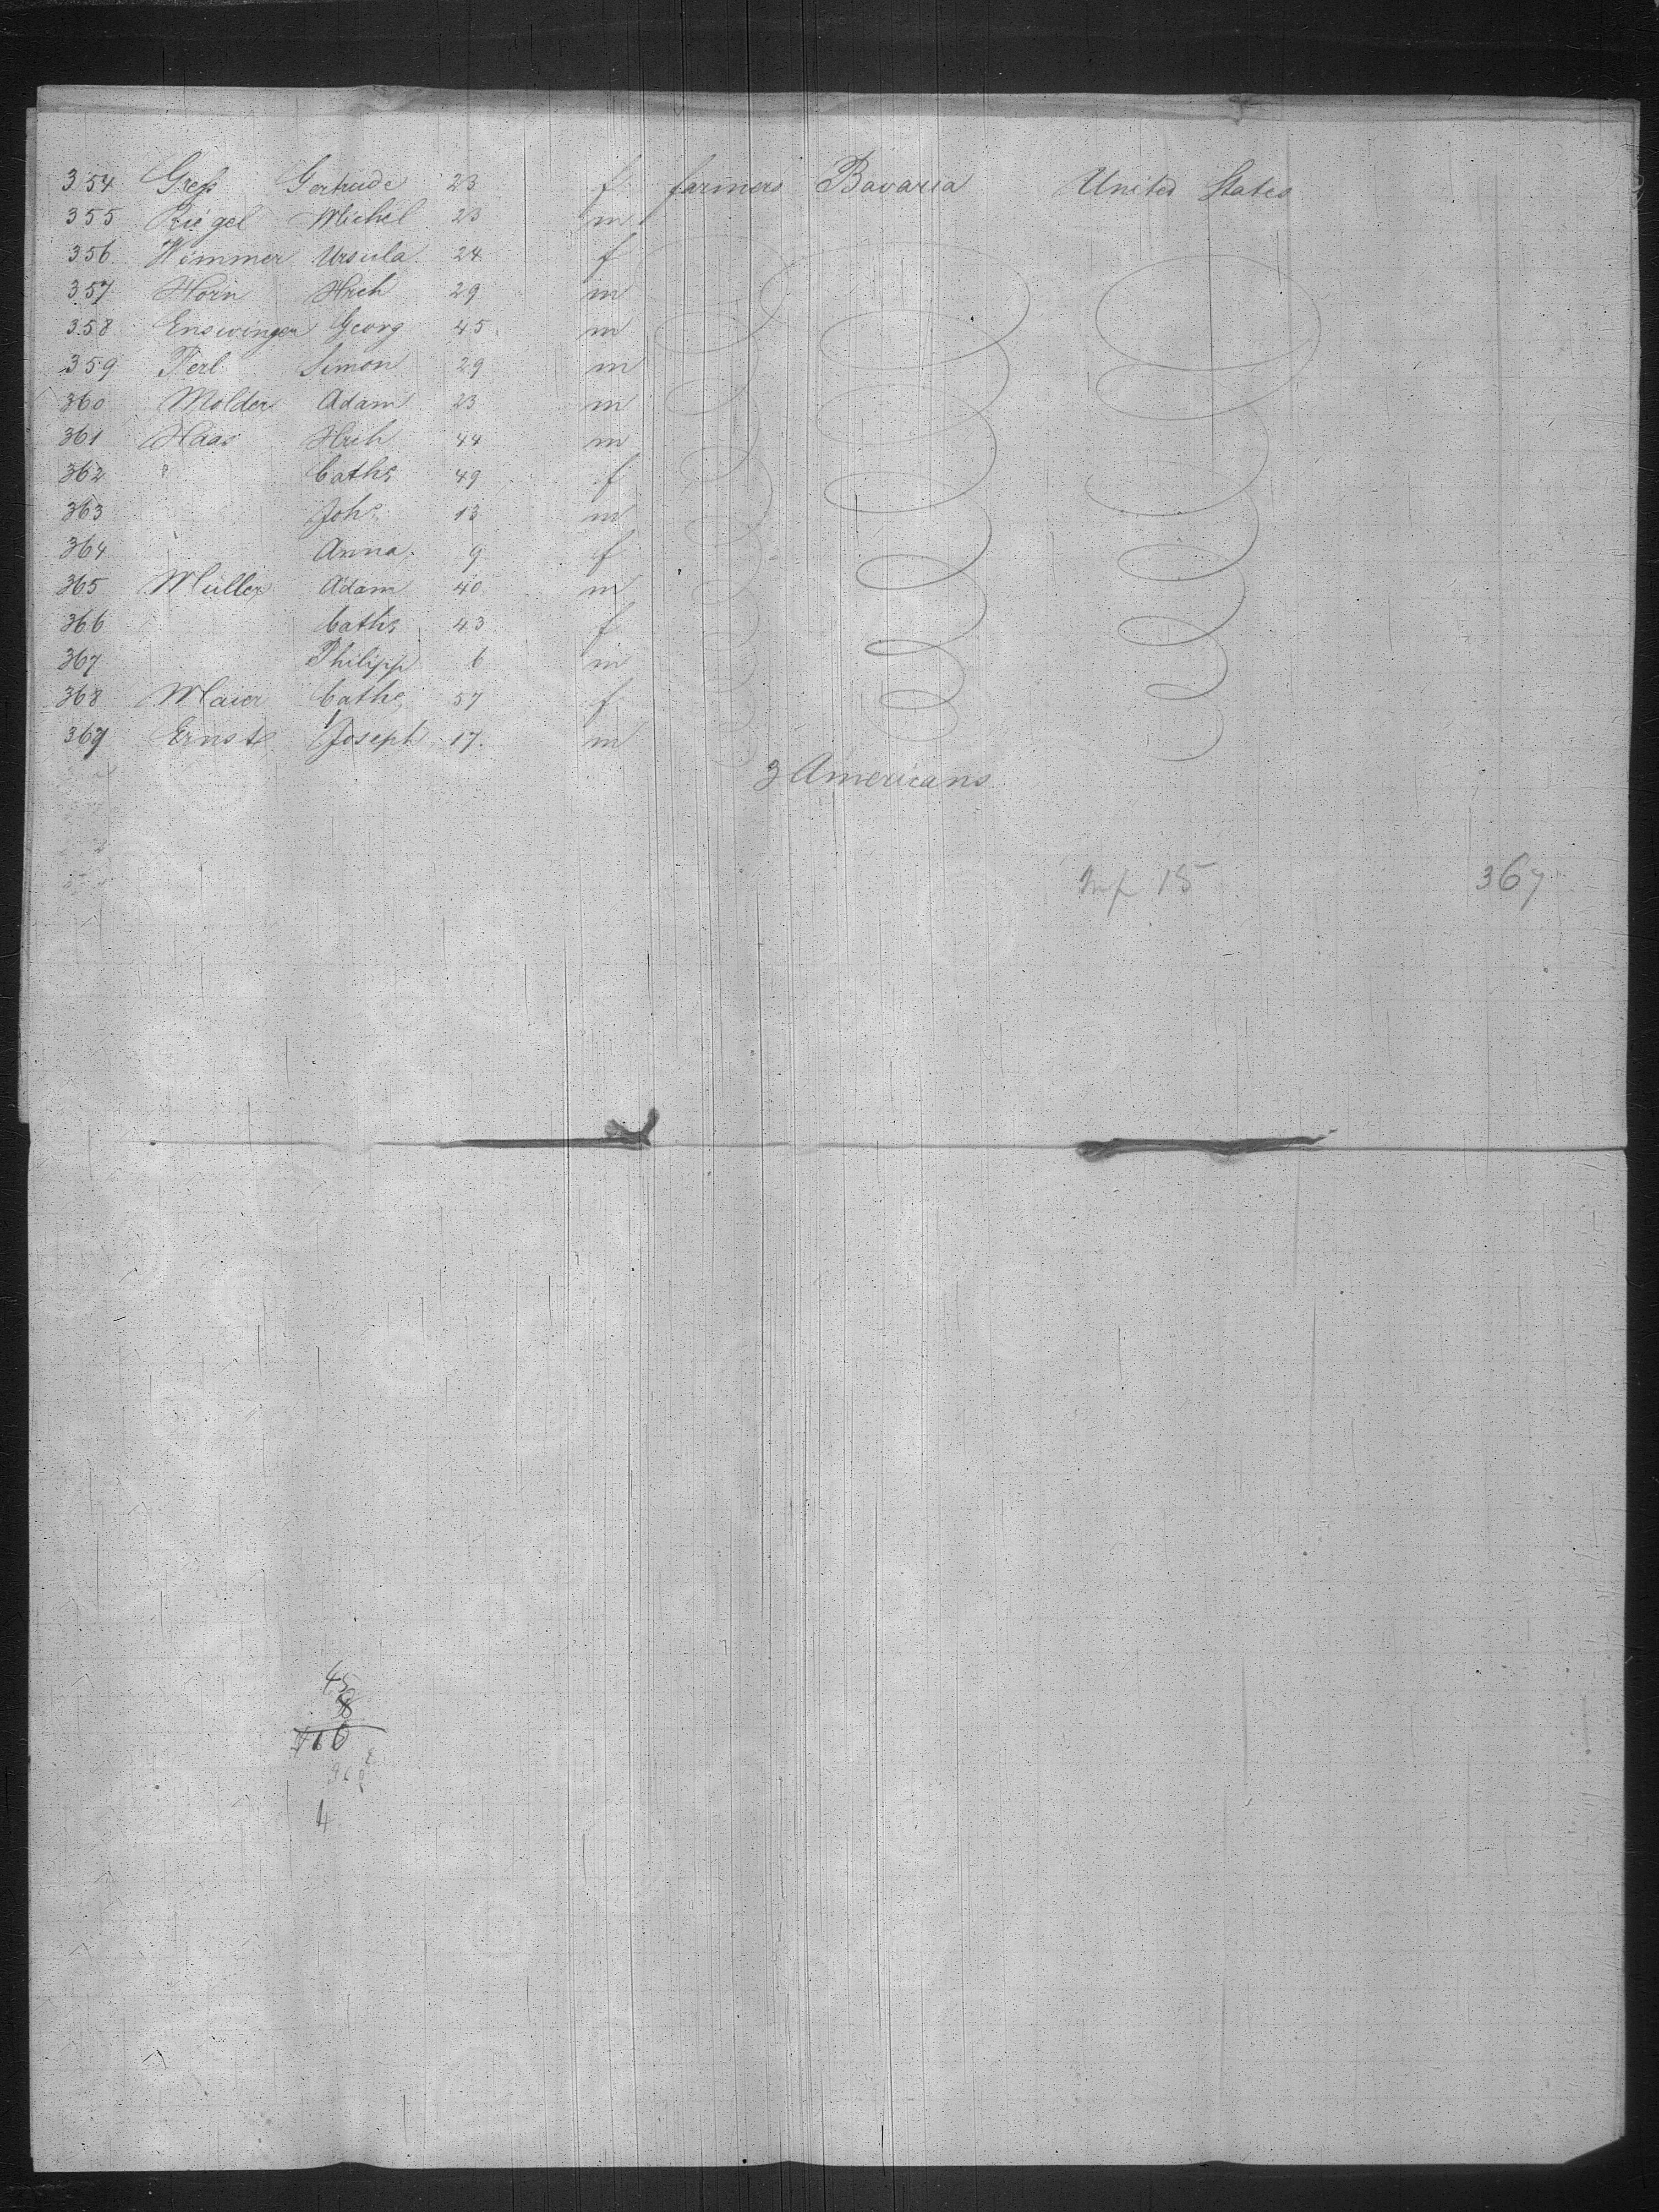 354 Greß Gertrude 23 f farmers Bavaria United States
355 Riegel Michel 23 m
356 Wimmer Ursula 24 f
357 Horn Hrch 29 m
358 Enswinger Georg 45 m
359 Ferl Simon 29 m
360 Molder Adam 23 m
361 Haas Hrch 44 m
362 " Cathe 49 f
363 Johs 13 m
364 Anna 9 f
365 Müller Adam 40 m
366 Cathe 43 f
367 Philipp 6 m
368 Maier Cathe 57 f
369 Ernst Joseph 17. m
3 Americans
Inf 15 367
45
8
4